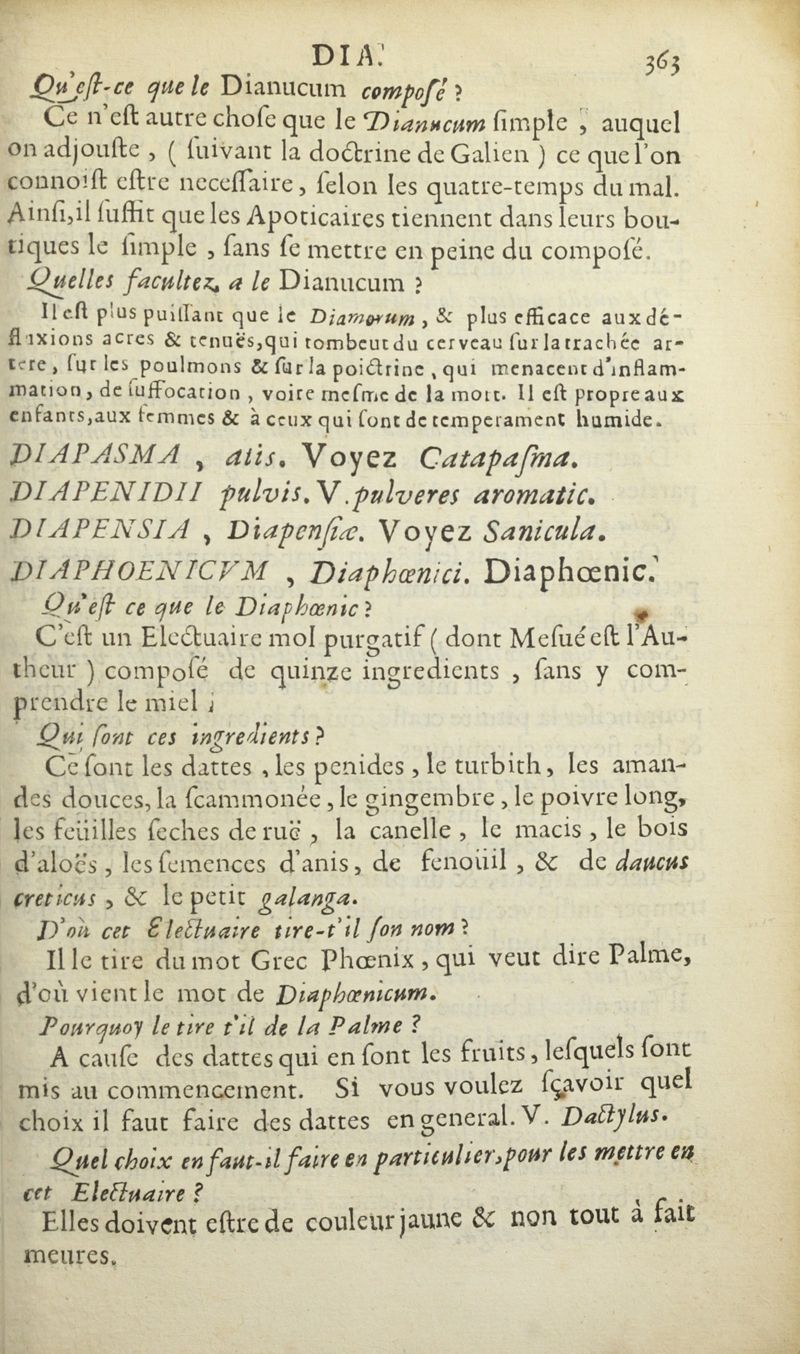 DIA. 363
Qu'eſt-ce que le Dianucum compoſé ?
Ce n'eſt autre choſe que le Dianucum ſimple , auquel
on adjouſte , ( ſuivant la doctrine de Galien ) ce que l'on
connoiſt eſtre neceſſaire, ſelon les quatre-temps du mal.
Ainſi,il ſuffit que les Apoticaires tiennent dans leurs bou-
tiques le ſimple , ſans ſe mettre en peine du compoſé.
Quelles facultez a le Dianucum ?
Il eſt plus puiſſant que le Diamorum , & plus efficace aux dé-
fluxions acres & tenuës,qui tombent du cerveau ſur la trachée ar-
tere , ſur les poulmons & ſur la poictrine , qui menacent d'inflam-
mation, de ſuffocation , voire meſme de la mort. Il eſt propre aux
enfants,aux femmes & à ceux qui ſont de temperament humide.
DIAPASMA , atis. Voyez Catapaſma.
DIAPENIDII pulvis. V. pulveres aromatic.
DIAPENSIA , Diapenſiæ. Voyez Sanicula.
DIAPHOENICVM , Diaphœnici. Diaphœnic.
Qu'eſt ce que le Diaphœnic ?
C'eſt un Electuaire mol purgatif ( dont Meſué eſt l'Au-
theur ) compoſé de quinze ingredients , ſans y com-
prendre le miel ;
Qui ſont ces ingredients ?
Ce ſont les dattes , les penides , le turbith, les aman-
des douces, la ſcammonée , le gingembre , le poivre long,
les feüilles ſeches de ruë , la canelle , le macis , le bois
d'aloës , les ſemences d'anis, de fenoüil , & de daucus
creticus , & le petit galanga.
D'où cet Electuaire tire-t'il ſon nom ?
Il le tire du mot Grec Phœnix , qui veut dire Palme,
d'où vient le mot de Diaphœnicum.
Pourquoy le tire t'il de la Palme ?
A cauſe des dattes qui en ſont les fruits, leſquels ſont
mis au commencement. Si vous voulez ſçavoir quel
choix il faut faire des dattes en general. V. Dactylus.
Quel choix en faut-il faire en particulier, pour les mettre en
cet Electuaire ?
Elles doivent eſtre de couleur jaune & non tout à fait
meures.